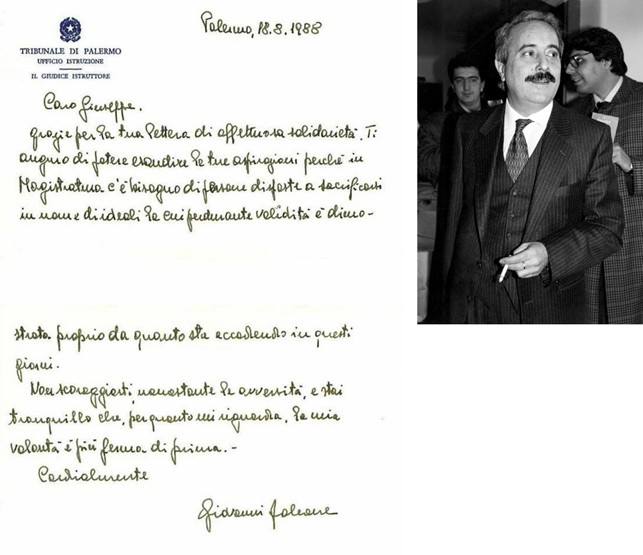 TRIBUNALE DI PALERMO
UFFICIO ISTRUZIONE
IL GIUDICE ISTRUTTORE
Palermo, 18.8.1988
Caro Giuseppe,
grazie per la tua lettera di affettuosa solidarietà. Ti
auguro di potere esaudire le tue aspirazioni perché in
Magistratura c'è bisogno di persone disposte a sacrificarsi
in nome di ideali la cui perdurante validità è dimo-
strata proprio da quanto sta accadendo in questi
giorni.
Non scoraggiarti, nonostante le avversità, e stai
tranquillo che, per quanto mi riguarda, la mia
volontà è più ferma di prima. -
Cordialmente
Giovanni Falcone